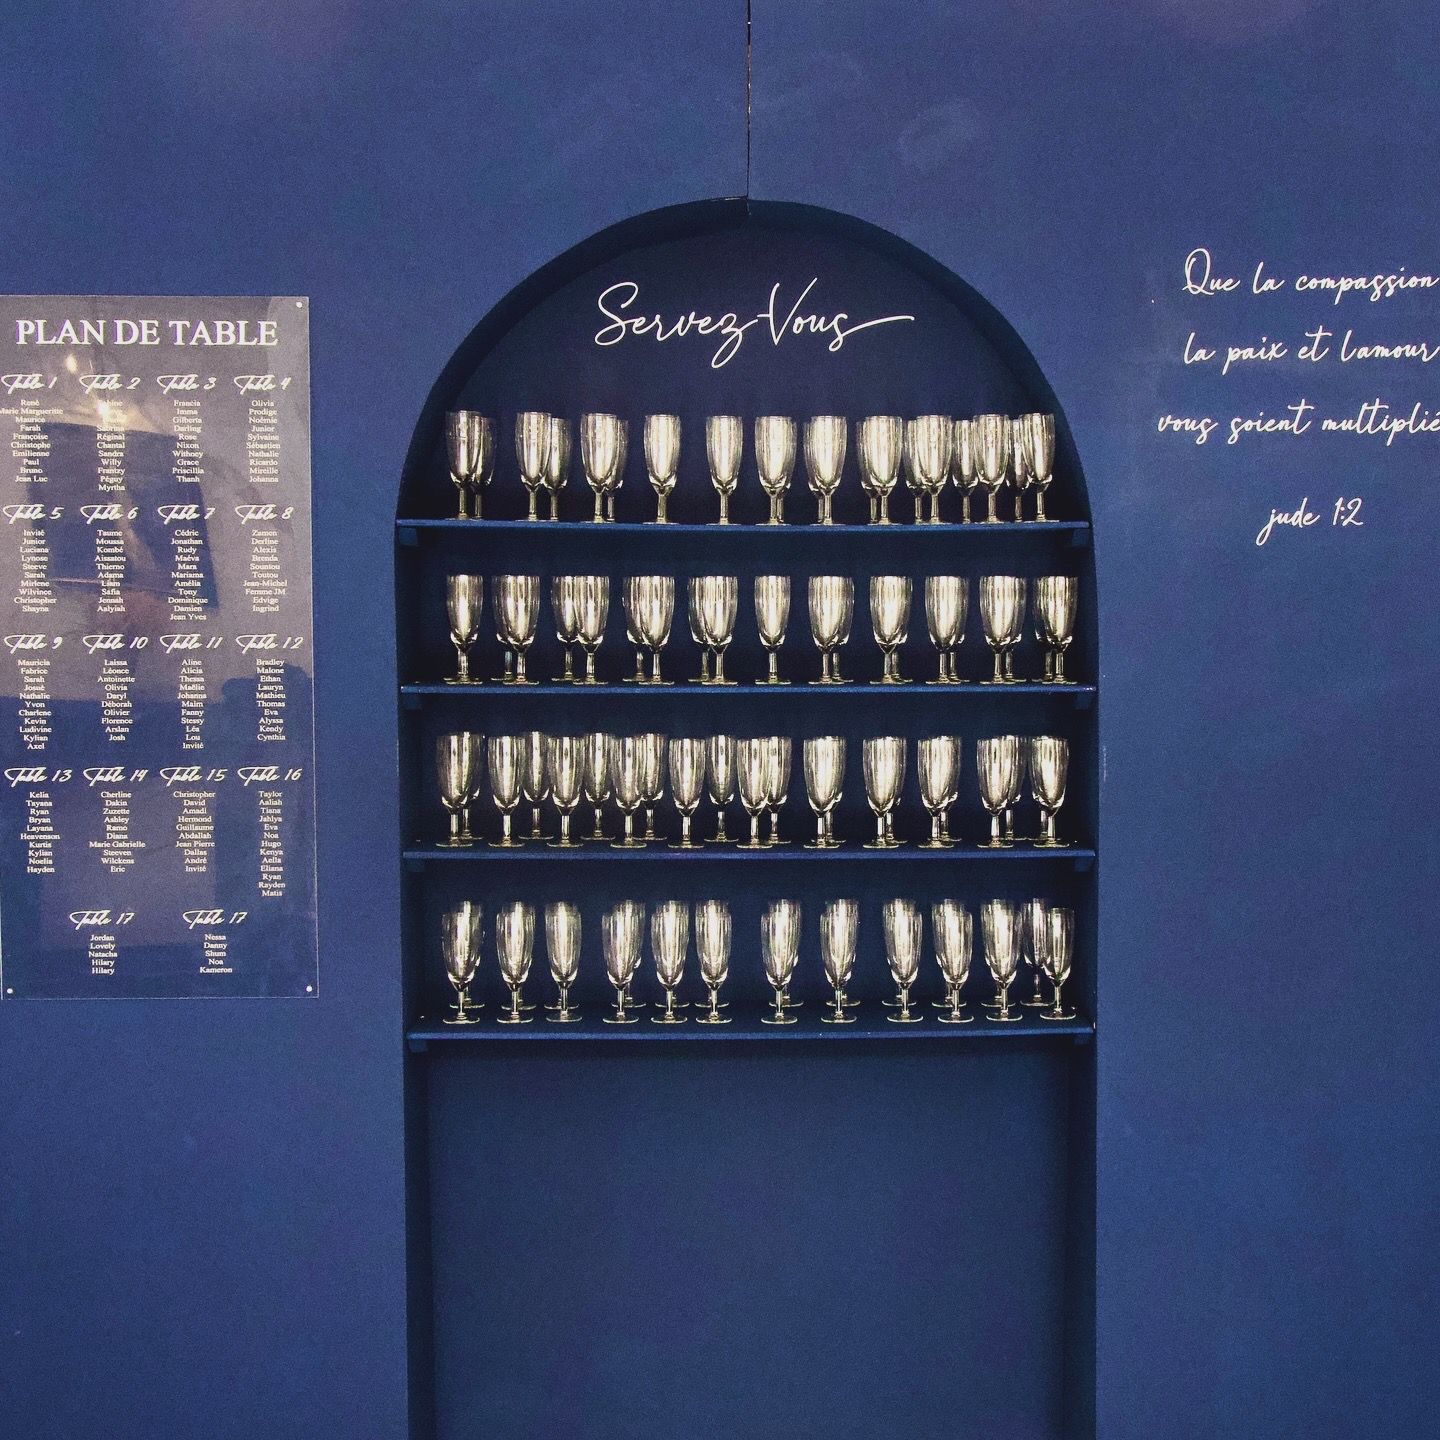 PLAN DE TABLE
Table 1
René
Marie Margueritte
Maurice
Farah
Françoise
Christophe
Emilienne
Paul
Bruno
Jean Luc
Table 2
Sabrina
Réginal
Chantal
Sandra
Willy
Frantzy
Péguy
Myrtha
Table 3
Francia
Imma
Gilberia
Darling
Rose
Nixon
Withney
Grace
Priscillia
Thanh
Table 4
Olivia
Prodige
Noémie
Junior
Sylvaine
Sébastien
Nathalie
Ricardo
Mireille
Johanna
Table 5
Invité
Junior
Luciana
Lynose
Steeve
Sarah
Mirlene
Wilvince
Christopher
Shayna
Table 6
Taume
Moussa
Kombé
Aissatou
Thierno
Adama
Liam
Safia
Jennah
Aalyiah
Table 7
Cédric
Jonathan
Rudy
Maéva
Mara
Mariama
Amélia
Tony
Dominique
Damien
Jean Yves
Table 8
Zamen
Derline
Alexis
Brenda
Sountou
Toutou
Jean-Michel
Femme JM
Edvige
Ingrind
Table 9
Mauricia
Fabrice
Sarah
Josué
Nathalie
Yvon
Charlene
Kevin
Ludivine
Kylian
Axel
Table 10
Laissa
Léonce
Antoinette
Olivia
Daryl
Déborah
Olivier
Florence
Arslan
Josh
Table 11
Aline
Alicia
Thessa
Maélie
Johanna
Maim
Fanny
Stessy
Léa
Lou
Invité
Table 12
Bradley
Malone
Ethan
Lauryn
Mathieu
Thomas
Eva
Alyssa
Kendy
Cynthia
Table 13
Kelia
Tayana
Ryan
Bryan
Layana
Heavenson
Kurtis
Kylian
Noelia
Hayden
Table 14
Cherline
Dakin
Zuzette
Ashley
Ramo
Diana
Marie Gabrielle
Steeven
Wilckens
Eric
Table 15
Christopher
David
Amadi
Hermond
Guillaume
Abdallah
Jean Pierre
Dallas
André
Invité
Table 16
Taylor
Aaliah
Tiana
Jahlya
Eva
Noa
Hugo
Kenya
Aella
Eliana
Ryan
Rayden
Matis
Table 17
Jordan
Lovely
Natacha
Hilary
Hilary
Table 17
Nessa
Danny
Shum
Noa
Kameron
Servez-Vous
Que la compassion
la paix et l'amour
vous soient multiplié
jude 1:2